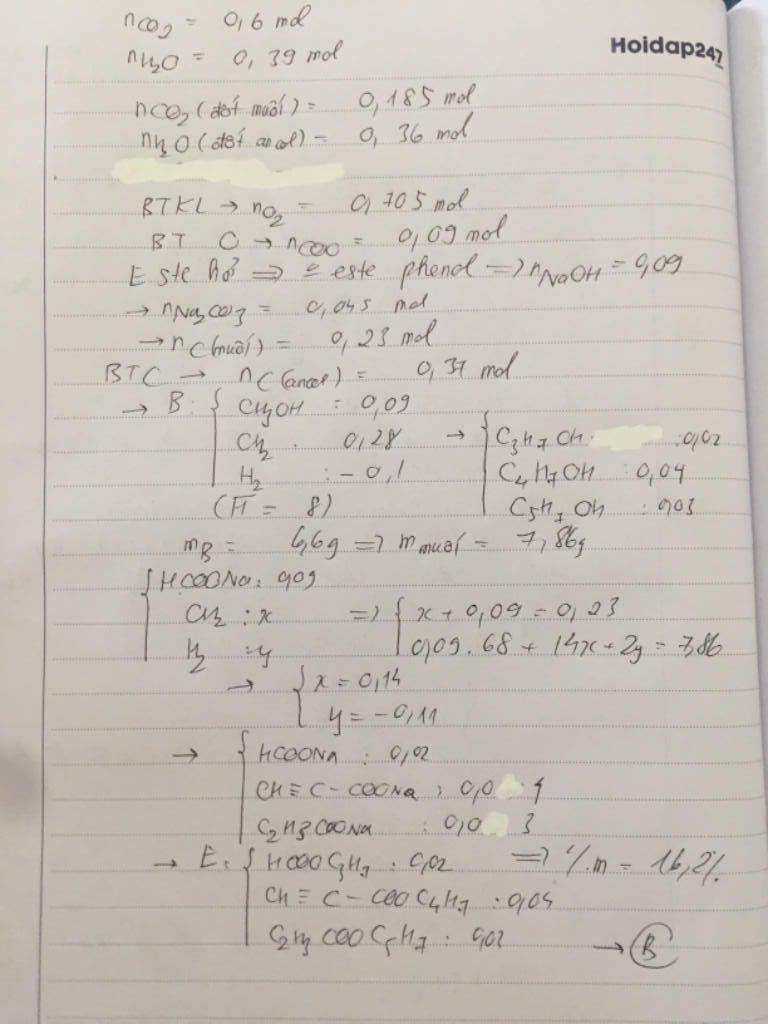 nCO2 = 0,6 mol
Hoidap247
nH2O = 0,39 mol
nCO2 (đốt muối) = 0,185 mol
nH2O (đốt ancol) = 0,36 mol
BTKL → nO2 = 0,705 mol
BT O → nCOO = 0,09 mol
Este hở => este phenol => nNaOH = 0,09
→ nNa2CO3 = 0,045 mol
→ nC(muối) = 0,23 mol
BTC → nC(ancol) = 0,37 mol
→ B: { CH3OH = 0,09
CH2 : 0,28 → { C3H7OH : 0,02
H2 : -0,1 C4H7OH : 0,04
(H̅ = 8) C5H7OH : 0,03
mB = 6,6g => m muối = 7,86g
{ HCOONa : 0,09
CH2 : x => { x + 0,09 = 0,23
H2 : y 0,09.68 + 14x + 2y = 7,86
→ { x = 0,14
y = -0,11
→ { HCOONa : 0,02
CH≡C-COONa : 0,0 4
C2H3COONa : 0,0 3
→ E: { HCOOC3H7 : 0,02 => %m = 16,2%
CH≡C-COOC4H7 : 0,04
C2H3COOC5H7 : 0,03 → B